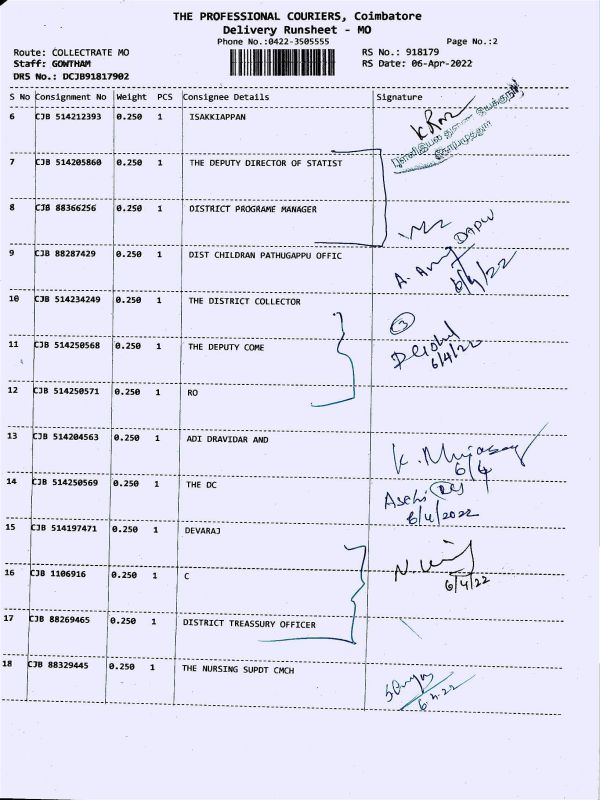 THE PROFESSIONAL COURIERS, Coimbatore
Delivery Runsheet - MO
Phone No.:0422-3505555 Page No.:2
Route: COLLECTRATE MO RS No.: 918179
Staff: GOWTHAM RS Date: 06-Apr-2022
DRS No.: DCJB91817902
S No Consignment No Weight PCS Consignee Details Signature
6 CJB 514212393 0.250 1 ISAKKIAPPAN
7 CJB 514205860 0.250 1 THE DEPUTY DIRECTOR OF STATIST
8 CJB 88366256 0.250 1 DISTRICT PROGRAME MANAGER
9 CJB 88287429 0.250 1 DIST CHILDRAN PATHUGAPPU OFFIC
6/4/22
10 CJB 514234249 0.250 1 THE DISTRICT COLLECTOR
3
11 CJB 514250568 0.250 1 THE DEPUTY COME
6/4/22
12 CJB 514250571 0.250 1 RO
13 CJB 514204563 0.250 1 ADI DRAVIDAR AND
6/4
14 CJB 514250569 0.250 1 THE DC
6/4/2022
15 CJB 514197471 0.250 1 DEVARAJ
16 CJB 1106916 0.250 1 C
6/4/22
17 CJB 88269465 0.250 1 DISTRICT TREASSURY OFFICER
18 CJB 88329445 0.250 1 THE NURSING SUPDT CMCH
6.4.22